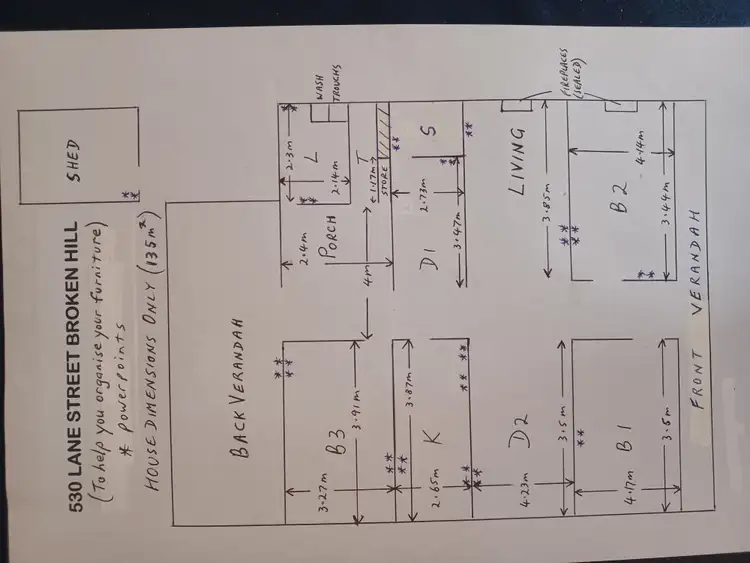 530 LANE STREET BROKEN HILL
(To help you organise your furniture)
* powerpoints
HOUSE DIMENSIONS ONLY (135m²)
SHED
**
BACK VERANDAH
WASH
TROUGHS
2.3m
L
2.14m
**
**
2.4m
PORCH
1.17m
T
STORE
4m
**
**
B3
3.91m
3.27m
**
S
**
**
2.73m
D1
3.47m
3.87m
K
2.65m
**
**
**
**
**
FIREPLACES
(SEALED)
LIVING
3.85m
**
**
D2
3.5m
4.23m
**
4.14m
B2
3.44m
**
B1
3.5m
4.17m
FRONT VERANDAH